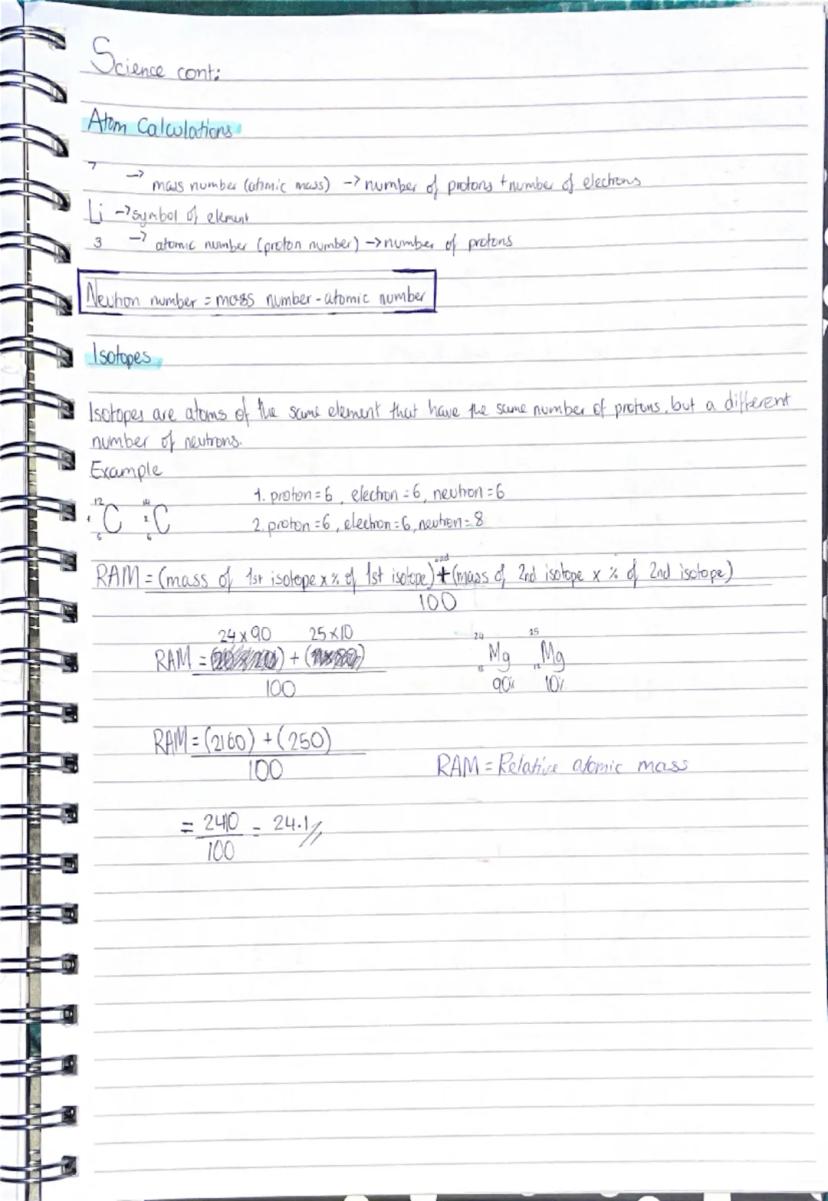 Science cont:
Atom Calculations
7 → mass number (atomic mass) → number of protons + number of electrons
Li → symbol of element
3 → atomic number (proton number) → number of protons
Neutron number = mass number - atomic number
Isotopes
Isotopes are atoms of the same element that have the same number of protons, but a different
number of neutrons.
Example
12 14
1. C 2. C
6 6
1. proton = 6, electron = 6, neutron = 6
2. proton = 6, electron = 6, neutron = 8
RAM = (mass of 1st isotope x % of 1st isotope) + (mass of 2nd isotope x % of 2nd isotope)
100
24 x 90 25 x 10
RAM = ( ) + ( )
100
24 25
Mg Mg
12
90% 10%
RAM = (2160) + (250)
100
RAM = Relative atomic mass
= 2410 = 24.1
100